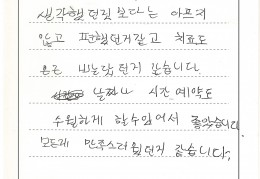 생각했던것 보다는 아프지
않고 편했던거같고 치료도
빠르 날짜나 시간 예약도
수월하게 할수있어서 좋았습니다.
모든게 만족스러웠던거 같습니다.